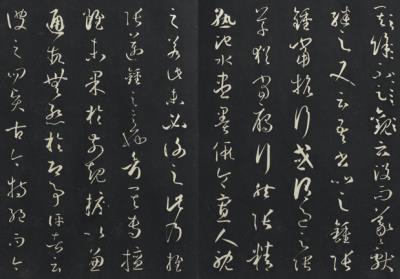 餘不足觀云沒而羲獻
繼之又云吾書比之鍾張
鍾當抗行或謂過之張
草猶當雁行然張精
熟池水盡墨假令寡人耽
之若此未必謝之此乃推
張邁鍾之意也考其專擅
雖未果於前規摭以兼
通故無慚於即事評者云
彼之四賢古今特絕而今